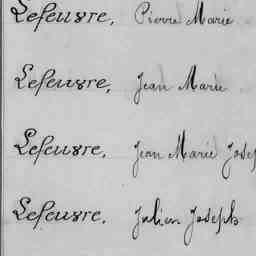 Lefeuvre, Pierre Marie
Lefeuvre, Jean Marie
Lefeuvre, Jean Marie Josep
Lefeuvre, Julien Joseph